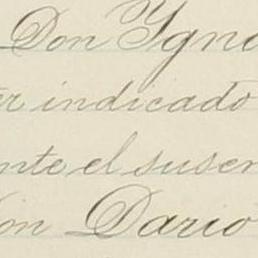 Don Ygna
er indicado
nte el suscr
on Dario